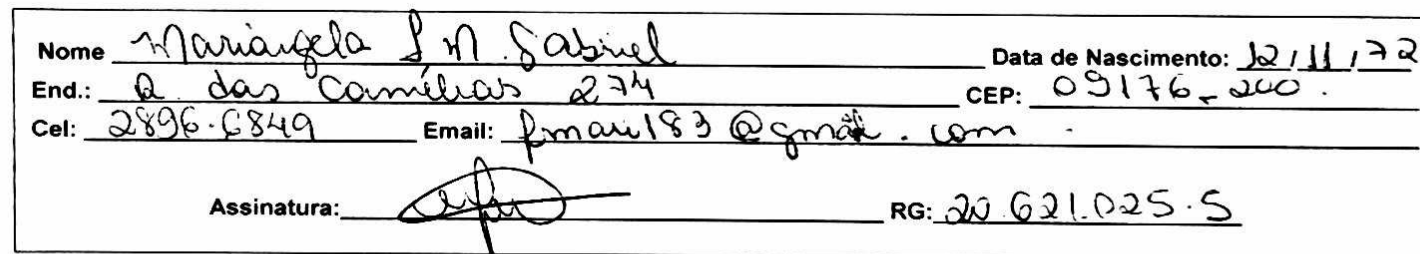 Nome Mariangela L M. Gabriel Data de Nascimento: 12/11/72
End.: R. das Camélias 274 CEP: 09176-200.
Cel: 2896.6849 Email: fmari183@gmail.com
Assinatura: RG: 20.621.025.5